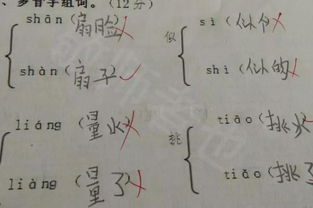 、多音字组词。（12分）
shān（扇脸
shàn（扇子
liáng（量水
liàng（量了
sì（似
shì（似的
挑
tiāo（挑水
tiǎo（挑